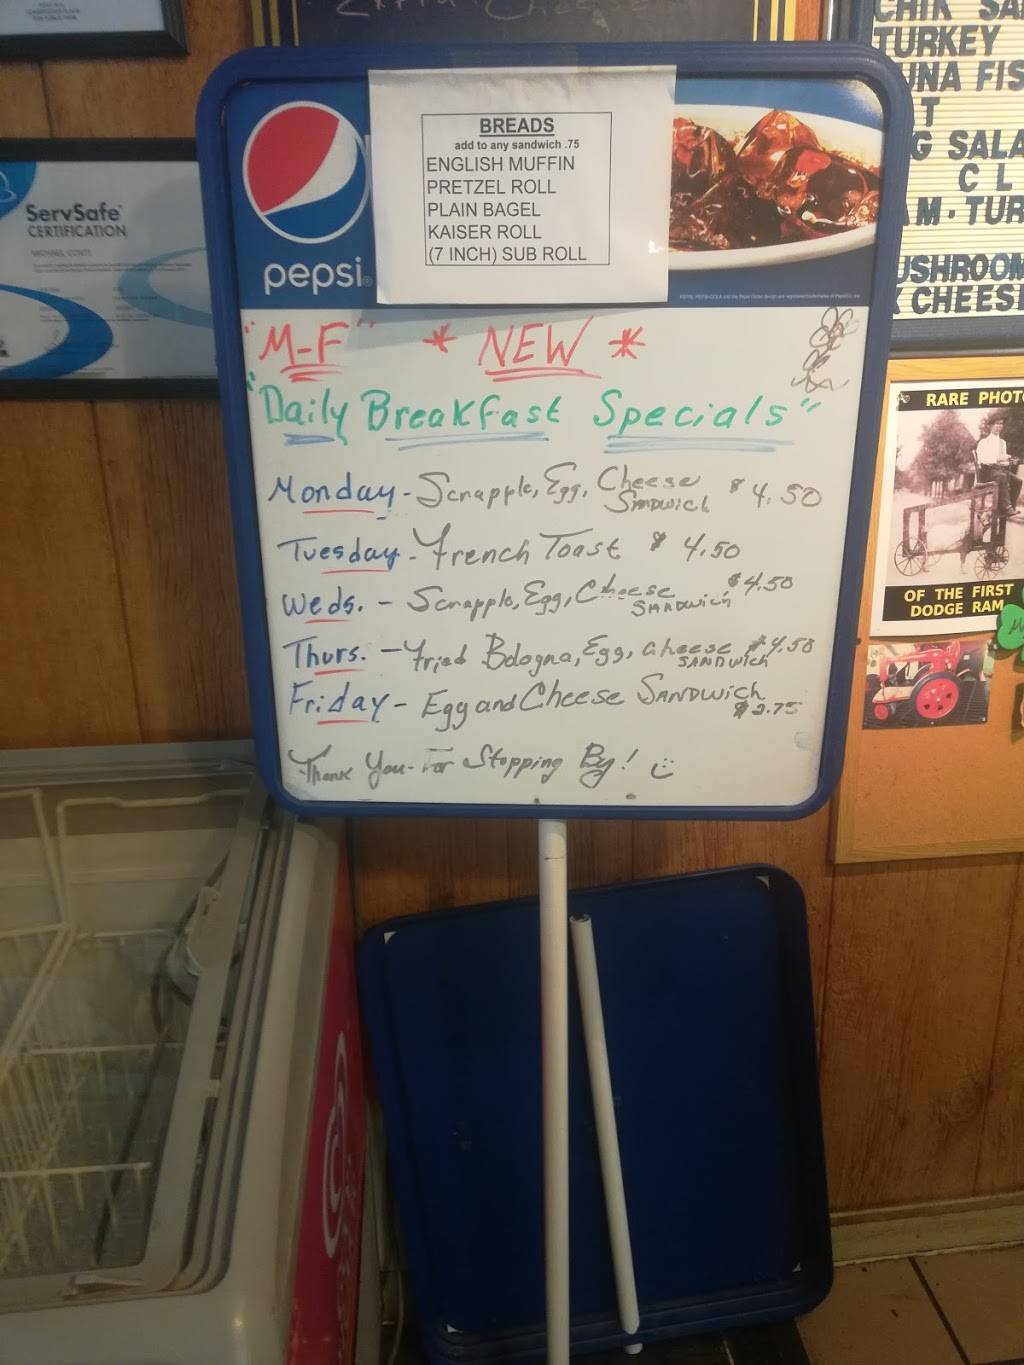 Extra Cheese
ServSafe
CERTIFICATION
MICHAEL CONTI
pepsi
BREADS
add to any sandwich .75
ENGLISH MUFFIN
PRETZEL ROLL
PLAIN BAGEL
KAISER ROLL
(7 INCH) SUB ROLL
"M-F" * NEW *
"Daily Breakfast Specials"
Monday - Scrapple, Egg, Cheese Sandwich $4.50
Tuesday - French Toast $4.50
Weds. - Scrapple, Egg, Cheese Sandwich $4.50
Thurs. - Fried Bologna, Egg, Cheese Sandwich $4.50
Friday - Egg and Cheese Sandwich $2.75
Thank You - For Stopping By!
CHIK SA
TURKEY
UNA FIS
T
G SALA
C L
AM · TUR
USHROOM
CHEES
RARE PHOTO
OF THE FIRST
DODGE RAM